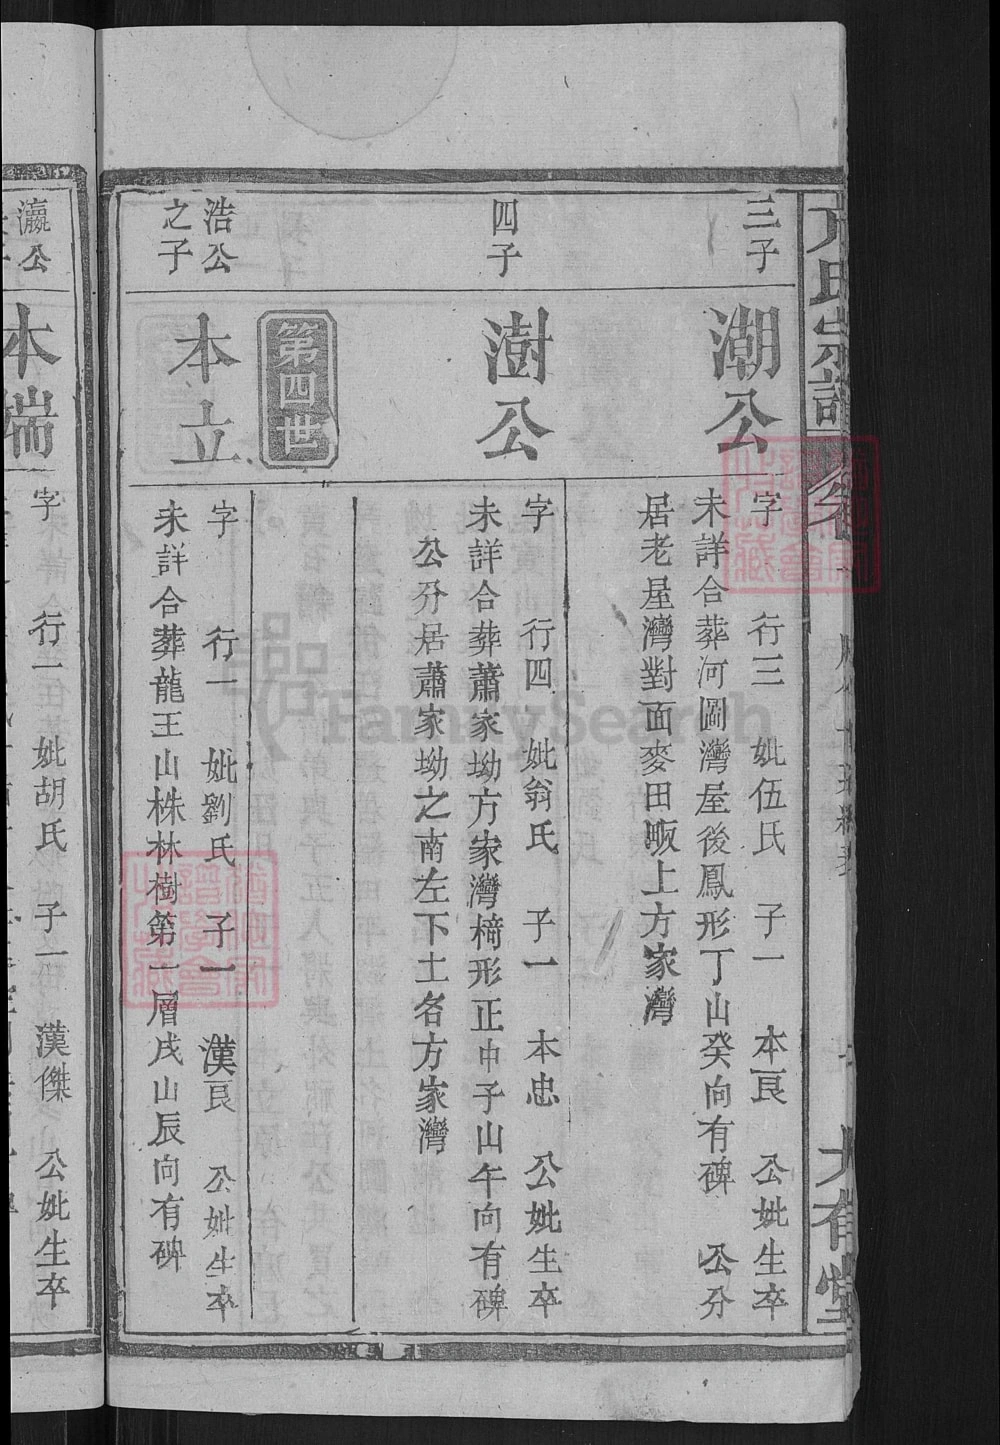 方氏宗譜
大有堂
三子
潮公
字 行三 妣伍氏 子一 本良 公妣生卒
未詳合葬河圖灣屋後鳳形丁山癸向有碑 公分
居老屋灣對面麥田畈上方家灣
四子
澍公
字 行四 妣翁氏 子一 本忠 公妣生卒
未詳合葬蕭家坳方家灣椅形正中子山午向有碑
公分居蕭家坳之南左下土名方家灣
第四世
浩公
之子
本立
字 行一 妣劉氏 子一 漢良 公妣生卒
未詳合葬龍王山株林樹第一層戌山辰向有碑
瀛公
本端
字 行二 妣胡氏 子一 漢傑 公妣生卒
FamilySearch